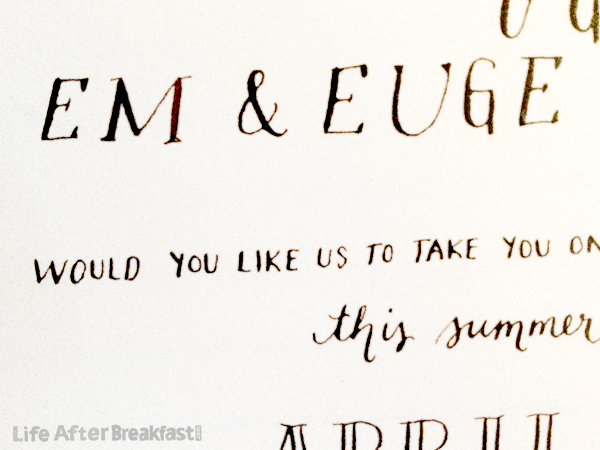 EM & EUGE
WOULD YOU LIKE US TO TAKE YOU ON
this summer
APRIL
Life After Breakfast!